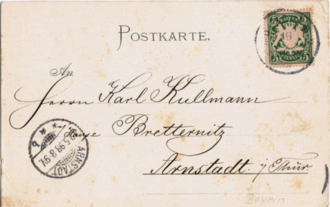 POSTKARTE.
An
Herrn Karl Kullmann
Bretternitz
Arnstadt i/Thür
ARNSTADT
Bayern